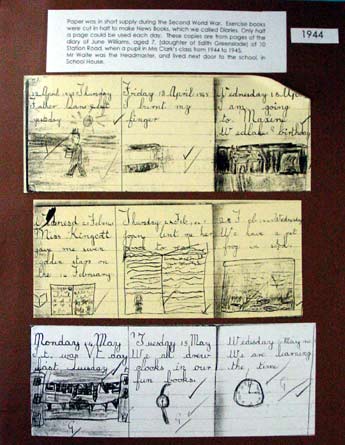 Paper was in short supply during the Second World War. Exercise books
were cut in half to make News Books, which we called Diaries. Only half
a page could be used each day. These copies are from pages of the
diary of June Williams, aged 7, (daughter of Edith Greenslade) of 10
Station Road, when a pupil in Mrs Clark's class from 1944 to 1945.
Mr Waite was the Headmaster, and lived next door to the school, in
School House.
1944
April 1945 Thursday
Father
yesterday
Friday 13 April 1945
I burnt my
finger
Wednesday 18 April
I am going
to Maxine
Wedlake birthday
Miss Kingcott
gave me seven
golden stars on
the February
Thursday
lent me her
book to read
Wednesday
We have a pet
frog in
Monday 14 May
It was V.E. day
last Tuesday
Tuesday 15 May
We all drew
clocks in our
fun books.
Wedsday May
We are learning
the time
G
G